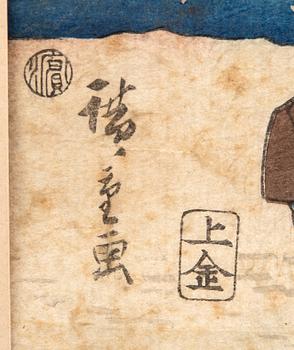 濱
廣重画
上金